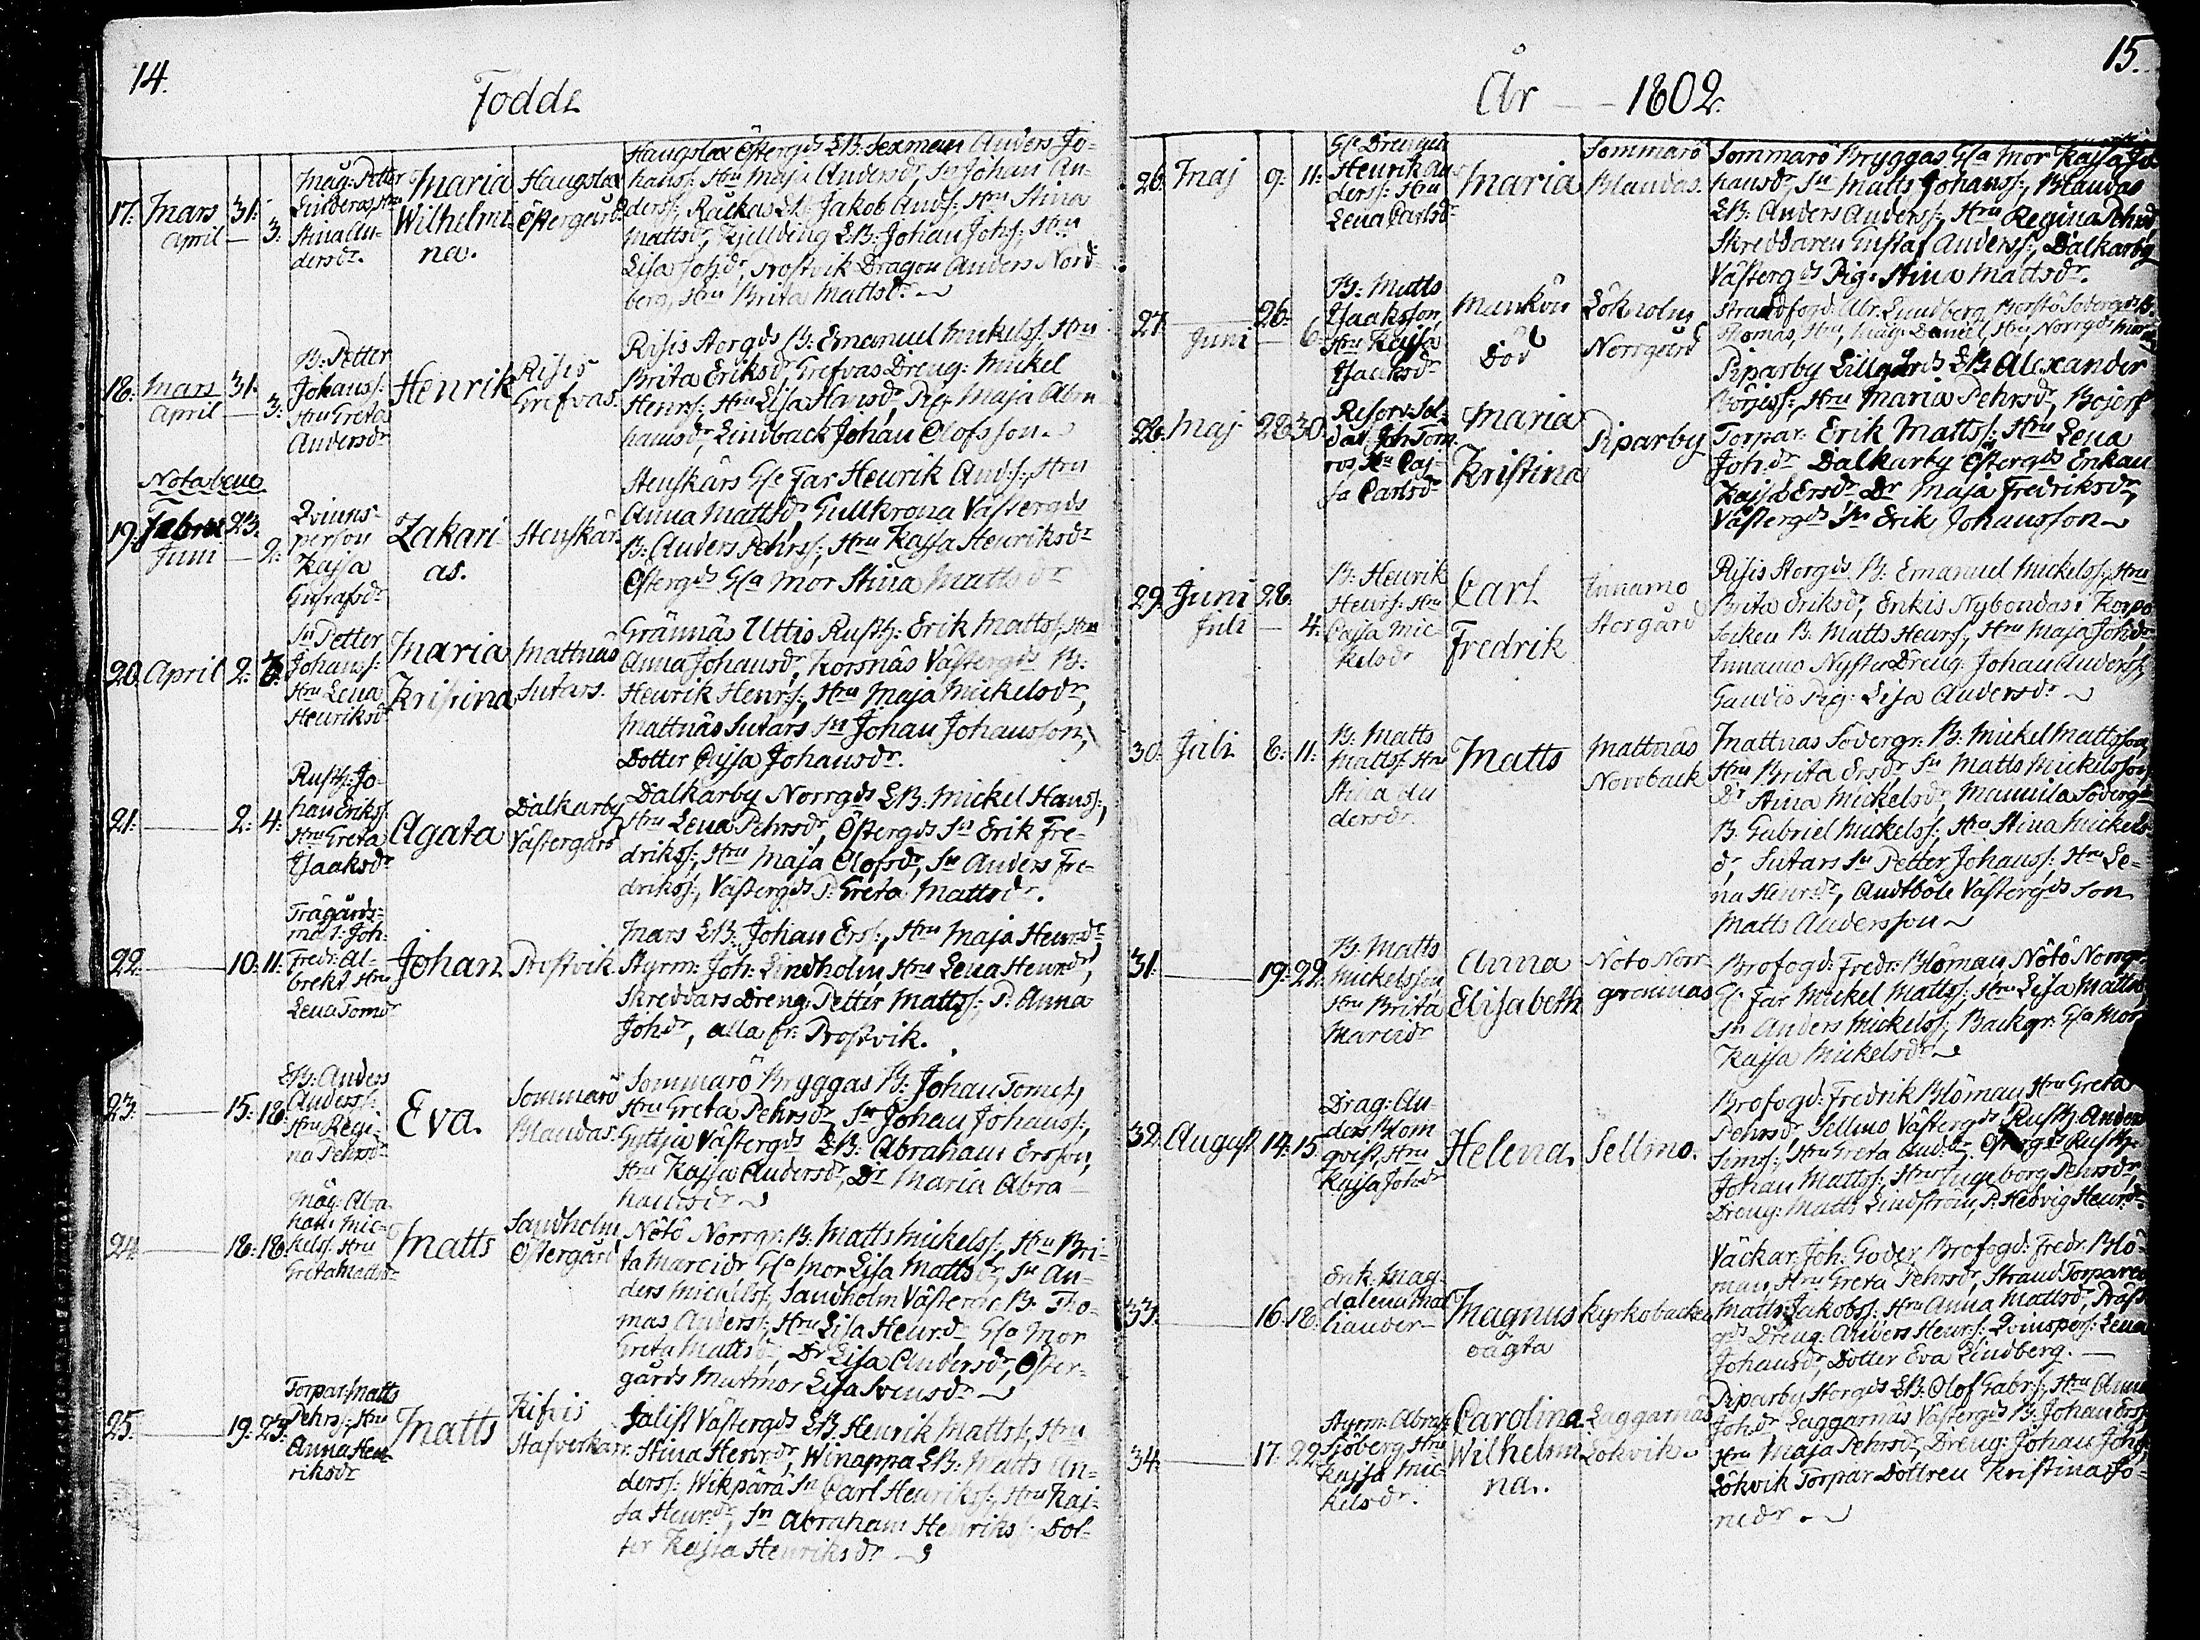 14.
Födde
17. Mars 31.
April — 3.
Mäg: Petter
Lindberg, Hru
Stina An-
dersdr.
Maria
Wilhelmi-
na.
Haugslax
Östergård
Haugslax Östergds LB. Sexman Anders Jo-
hanss: Hru Maja Andersdr, Sn Johan An-
derss:, Räckas LB: Jakob Ands:, Hru Stina
Mattsdr, Kjellving LB: Johan Johs:, Hru
Lisa Johdr, Prostvik Dragon Anders Nord-
berg, Hru Brita Mattsdr
18. Mars 31.
April — 3.
B: Petter
Johanss:
Hru Greta
Andersdr
Henrik
Risis
Grefvas.
Risis Storgds B: Emanuel Mickelss: Hru
Brita Eriksdr, Grefvas Dreng: Mickel
Henrss:, Hru Lisa Hansdr, Pig. Maja Abra
hamsdr, Lindback Johan Olofsson
Notabene
19. Febru 23.
Juni — 2.
Qvinns-
person
Kajsa
Gustafsdr
Zakari-
as.
Stenskär.
Stenskärs Gle Far Henrik Ands:, Hru
Anna Mattsdr, Gullkrona Västergds
B: Anders Pehrss:, Hru Kajsa Henriksdr
Östergds Gla Mor Stina Mattsdr
20. April 2. 6.
Sn Petter
Johanss:
Hru Lena
Henriksdr
Maria
Kristina
Mattnäs
Sutars.
Grännäs Uttis Rusth: Erik Mattss, Hru
Anna Johansdr, Korsnäs Västergds B:
Henrik Henrss:, Hru Maja Mickelsdr,
Mattnäs Sutars Sn Johan Johansson,
Dotter Cajsa Johansdr.
21. — 2. 4.
Rusth: Jo-
han Erikss:
Hru Greta
Isaaksdr
Agata
Dalkarby
Västergård
Dalkarby Norrgds LB: Mickel Hanss:,
Hru Lena Pehrsdr, Östergds Sn Erik Fre-
drikss:, Hru Maja Olofsdr, Sn Anders Fre-
drikss:, Västergds P. Greta Mattsdr.
22. — 10. 11.
Trägårds-
mäs: Joh:
Fredr: Al-
brekt Hru
Lena Tomdr
Johan
Prostvik
Mars LB: Johan Erss:, Hru Maja Henrdr
Styrm: Joh: Lindholm, Hru Lena Henrdr,
Skreddars Dreng: Petter Mattss: P. Anna
Johdr, alla fr: Prostvik.
23. — 15. 18.
LB: Anders
Anderss:
Hru Regi-
na Pehrsdr
Eva.
Sommarö
Blandas.
Sommarö Bryggas B: Johan Tomes,
Hru Greta Pehrsdr Sn Johan Johanss:,
Gyttja Västergds LB: Abraham Ersson,
Hru Kajsa Andersdr, Dr Maria Abra
hamsdr
24. — 18. 18.
Mäg: Abra
ham Mic-
kelss: Hru
Greta Mattsdr
Matts
Sandholm
Östergård
Nötö Norrgr: B: Matts Mickelss:, Hru Bri-
ta Marcidr Gla Mor Lisa Mattsdr, Sn An-
ders Mickelss, Sandholm Västergds B: Tho-
mas Anderss:, Hru Lisa Henrdr Gla Mor
Greta Mattsdr, Dr Lisa Andersdr, Öster-
gårds Mutmor Lisa Svensdr
25. — 19. 23.
Torpar: Matts
Pehrs:, Hru
Anna Hen
riksdr
Matts
Kifvis
Stafverkarr.
Jalist Västergds LB: Henrik Mattss:, Hru
Stina Henrdr, Winappa LB: Matts An-
derss: Wikpärä Sn Carl Henrikss:, Hru Kaj-
sa Henrdr, Sn Abraham Henrikss: Dot-
ter Kajsa Henriksdr
15.
År — 1802.
26. Maj 9. 11.
Gle Drengen
Henrik An
derss: Hru
Lena Carlsdr
Maria
Sommarö
Blandas.
Sommarö Bryggas Gla Mor Kajsa Jo
hansdr, Sn Matts Johanss:, Blandas
LB: Anders Anderss:, Hru Regina Pehrsd,
Skreddaren Gustaf Anderss:, Dalkarby
Västergds Pig: Stina Mattsdr.
27. — 26.
Juni — 6.
B: Matts
Isaksson,
Hru Kajsa
Isaaksdr
Mankön
Död
Lökholm
Norrgård
Strandfogd: Abr. Lundberg, Borstö Södergds B:
Thomas, Hru, Mäg: Daniel, Hru, Norrgds
28. Maj 28. 30.
Reserv: Sol-
dat: Joh: Torn
ros, Hru Caj-
sa Carlsdr
Maria
Kristina
Piparby
Piparby Lillgårds LB: Alexander
Börjess:, Hru Maria Pehrsdr, Bojers
Torpar: Erik Mattss:, Hru Lena
Johdr Dalkarby Östergds Enkan
Kajsa Ersdr Dr Maja Fredriksdr,
Västergds Sn Erik Johansson
29. Juni 28.
Juli — 4.
B: Henrik
Henrs: Hru
Cajsa Mic-
kelsdr
Carl
Fredrik
Innamo
Storgård
Risis Storgds B: Emanuel Mickelss:, Hru
Brita Eriksdr, Enkis Nybondas i Korpo
Socken B: Matts Henrs:, Hru Maja Johdr
Innamo Nysta Dreng: Johan Anderss:,
Gandis Pig: Lisa Andersdr
30. Juli 8. 11.
B: Matts
Mattss: Hru
Stina An
dersdr.
Matts
Mattnäs
Norrback
Mattnäs Södergr: B: Mickel Mattsson,
Hru Brita Ersdr Sn Matts Mickelsson,
Dr Stina Mickelsdr, Mannila Södergds
B: Gabriel Mickelss:, Hru Stina Mickels
dr, Sutars Sn Petter Johanss:, Hru Le-
na Henrdr, Andtböle Västergds Son
Matts Andersson
31. — 19. 22.
B: Matts
Mickelsson
Hru Brita
Marcidr
Anna
Elisabeth
Nötö Norr
grannas
Brofogd: Fredr: Blöman, Nötö Norrgr.
Gl. Far Mickel Mattss:, Hru Lisa Matts
Sn Anders Mickelss:, Backgr: Gla Mor
Kajsa Mickelsdr
32. August 14. 15.
Drag: An-
ders Blom
qvist, Hru
Kajsa Johdr
Helena.
Sellmo.
Brofogd: Fredrik Blöman, Hru Greta
Pehrsdr, Sellmo Västergds Rusth: Anders
Simss:, Hru Greta Anddr, Östergds Rusth:
Johan Mattss:, Hru Ingeborg Pehrsdr,
Dreng: Matts Lindström, P. Hedvig Henrdr
33. — 16. 18.
Enk: Mag-
dalena Mal
hander
Magnus
oägta
Kyrkobacken
Väckar: Joh: Goder, Brofogd: Fredr: Blö-
man, Hru Greta Pehrsdr, Strand Torparen
Matts Jakobss: Hru Anna Mattsdr, Präst-
gds Dreng: Anders Henrs:, Qvinspers: Lena
Johansdr, Dotter Eva Lindberg.
34. — 17. 22.
Styrm: Abrah
Sjöberg, Hru
Kajsa Mic-
kelsdr.
Carolina
Wilhelmi
na.
Laggarnäs
Lökvik
Piparby Storgds LB: Olof Gabrs:, Hru Anna
Johdr Laggarnäs Västergds B: Johan Erss
Hru Maja Pehrsdr, Dreng: Johan Johs:,
Lökvik Torpar Dottren Kristina Jo-
nedr